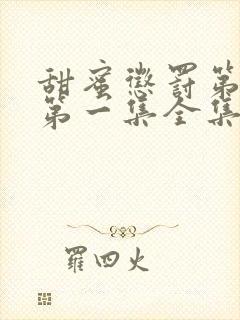 甜蜜懲罰第
第一集全集
羅四火